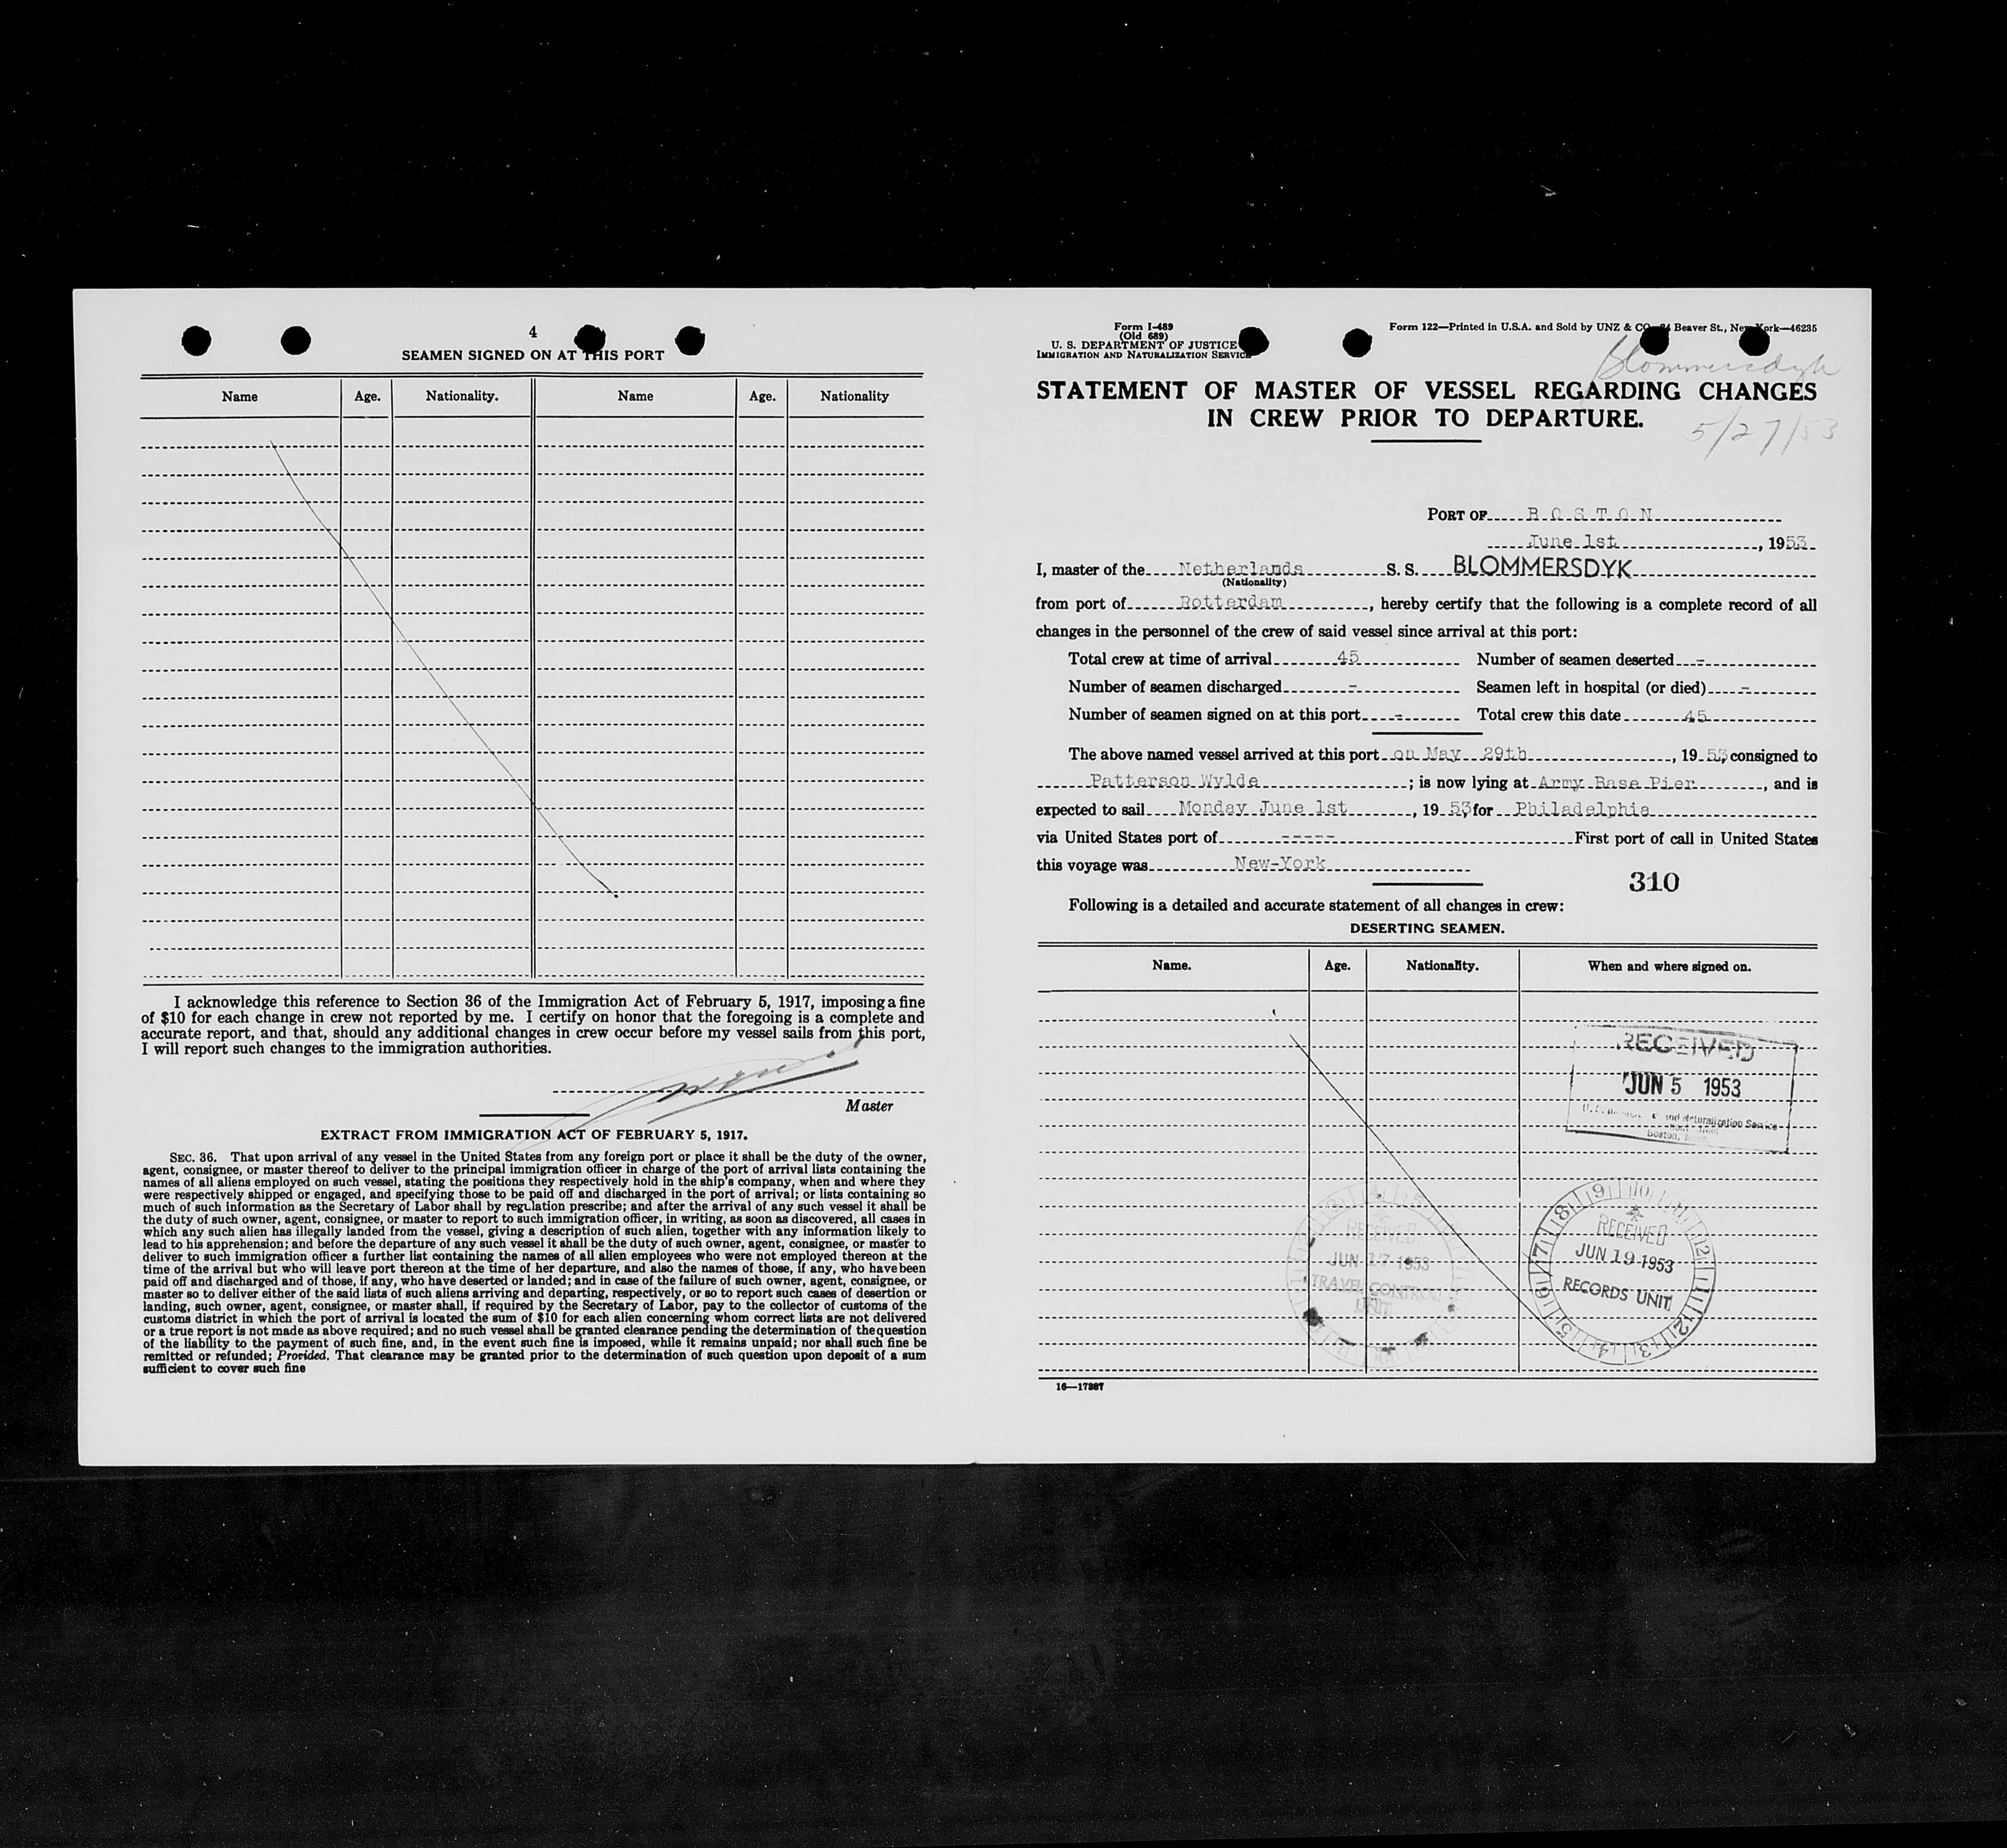 4
SEAMEN SIGNED ON AT THIS PORT
Name Age. Nationality. Name Age. Nationality
I acknowledge this reference to Section 36 of the Immigration Act of February 5, 1917, imposing a fine
of $10 for each change in crew not reported by me. I certify on honor that the foregoing is a complete and
accurate report, and that, should any additional changes in crew occur before my vessel sails from this port,
I will report such changes to the immigration authorities.
Master
EXTRACT FROM IMMIGRATION ACT OF FEBRUARY 5, 1917.
SEC. 36. That upon arrival of any vessel in the United States from any foreign port or place it shall be the duty of the owner,
agent, consignee, or master thereof to deliver to the principal immigration officer in charge of the port of arrival lists containing the
names of all aliens employed on such vessel, stating the positions they respectively hold in the ship's company, when and where they
were respectively shipped or engaged, and specifying those to be paid off and discharged in the port of arrival; or lists containing so
much of such information as the Secretary of Labor shall by regulation prescribe; and after the arrival of any such vessel it shall be
the duty of such owner, agent, consignee, or master to report to such immigration officer, in writing, as soon as discovered, all cases in
which any such alien has illegally landed from the vessel, giving a description of such alien, together with any information likely to
lead to his apprehension; and before the departure of any such vessel it shall be the duty of such owner, agent, consignee, or master to
deliver to such immigration officer a further list containing the names of all alien employees who were not employed thereon at the
time of the arrival but who will leave port thereon at the time of her departure, and also the names of those, if any, who have been
paid off and discharged and of those, if any, who have deserted or landed; and in case of the failure of such owner, agent, consignee, or
master so to deliver either of the said lists of such aliens arriving and departing, respectively, or so to report such cases of desertion or
landing, such owner, agent, consignee, or master shall, if required by the Secretary of Labor, pay to the collector of customs of the
customs district in which the port of arrival is located the sum of $10 for each alien concerning whom correct lists are not delivered
or a true report is not made as above required; and no such vessel shall be granted clearance pending the determination of the question
of the liability to the payment of such fine, and, in the event such fine is imposed, while it remains unpaid; nor shall such fine be
remitted or refunded; Provided, That clearance may be granted prior to the determination of such question upon deposit of a sum
sufficient to cover such fine
Form I-489
(Old 689)
U. S. DEPARTMENT OF JUSTICE
IMMIGRATION AND NATURALIZATION SERVICE
Form 122—Printed in U.S.A. and Sold by UNZ & CO. Beaver St., New York—46235
Blommersdyk
STATEMENT OF MASTER OF VESSEL REGARDING CHANGES
IN CREW PRIOR TO DEPARTURE.
5/27/53
PORT OF BOSTON
June 1st, 1953
I, master of the Netherlands S. S. BLOMMERSDYK
(Nationality)
from port of Rotterdam, hereby certify that the following is a complete record of all
changes in the personnel of the crew of said vessel since arrival at this port:
Total crew at time of arrival 45 Number of seamen deserted -
Number of seamen discharged - Seamen left in hospital (or died) -
Number of seamen signed on at this port - Total crew this date 45
The above named vessel arrived at this port on May 29th, 1953, consigned to
Patterson Wylde; is now lying at Army Base Pier, and is
expected to sail Monday June 1st, 1953, for Philadelphia
via United States port of ----- First port of call in United States
this voyage was New-York
310
Following is a detailed and accurate statement of all changes in crew:
DESERTING SEAMEN.
Name. Age. Nationality. When and where signed on.
RECEIVED
JUN 5 1953
and Naturalization Service
Boston,
RECEIVED
JUN 17 1953
TRAVEL CONTROL
UNIT
RECEIVED
JUN 19 1953
RECORDS UNIT
16—17887